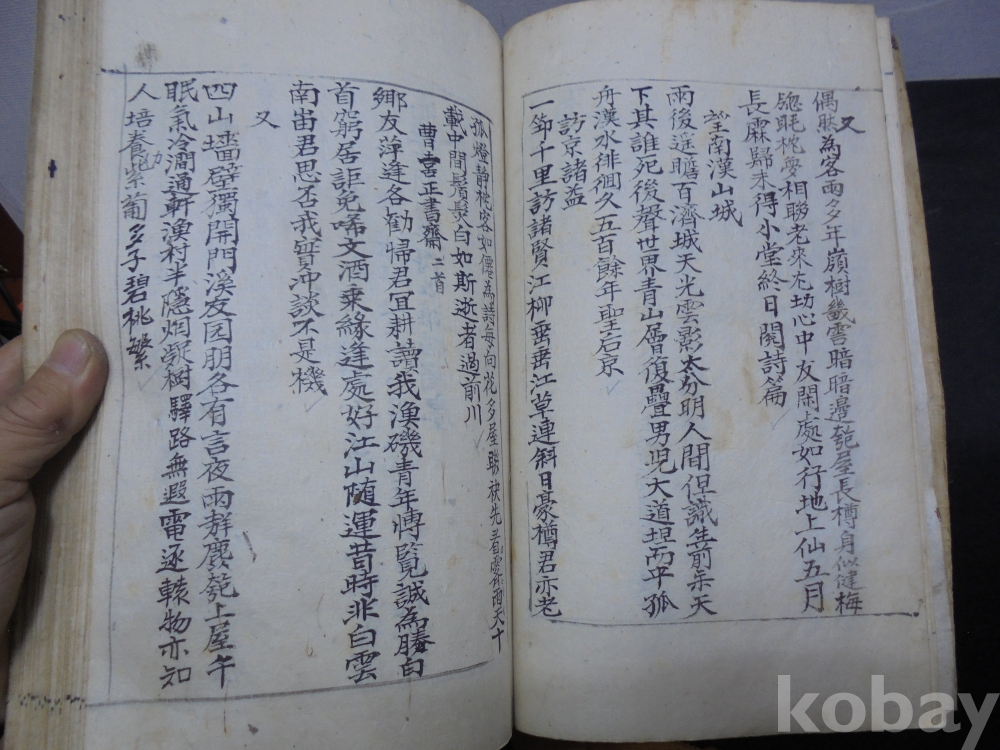 又
偶然為客雨多年嶺樹幾雲暗暗邊瓮屋長樽身似健梅
窓眠枕夢相聯老來尤切心中友閑處如行地上仙五月
長霖歸未得小堂終日閱詩篇
望南漢山城
雨後逆瞻百濟城天光雲影太分明人間但識生前乐天
下其誰死後聲世界青山層復疊男児大道坦而平孤
舟漢水徘徊久五百餘年聖后京
訪京諸益
一笻千里訪諸賢江柳垂垂江草連斜日豪樽君亦老
孤燈静枕客如僊為詩每向花多屋聯袂先看雲雨天十
載中間鬚髮白如斯逝者過前川
曹 正書齋 二首
鄉友萍逢各勸歸君宜耕讀我漁磯青年博覽誠為勝白
首窮居詎免唏文酒乘緣逢處好江山随運昔時非白雲
南畄君思否我寶沖談不是機
又
四山墻壁獨開門溪友园朋各有言夜雨群麀瓮上屋午
眠氣冷澗通軒漁村半隱烟凝樹驛路無遐電逐轅物亦知
人培養 紫葡多子碧桃繁
kobay